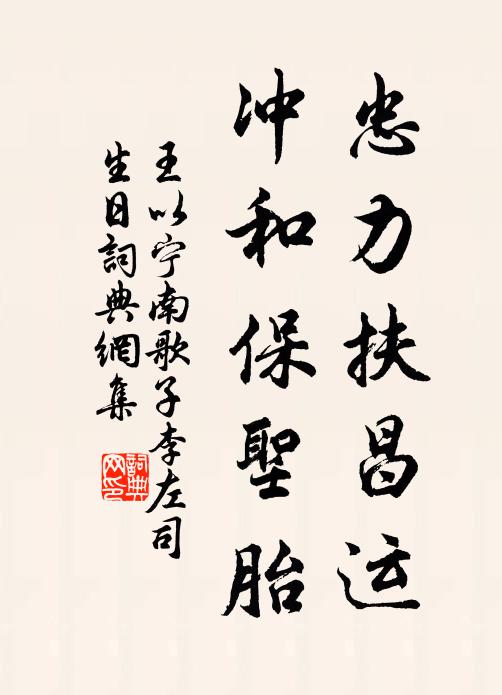 忠力扶昌运
冲和保聖胎
王以宁南歌子李左司
生日詞典網集
詞典网印